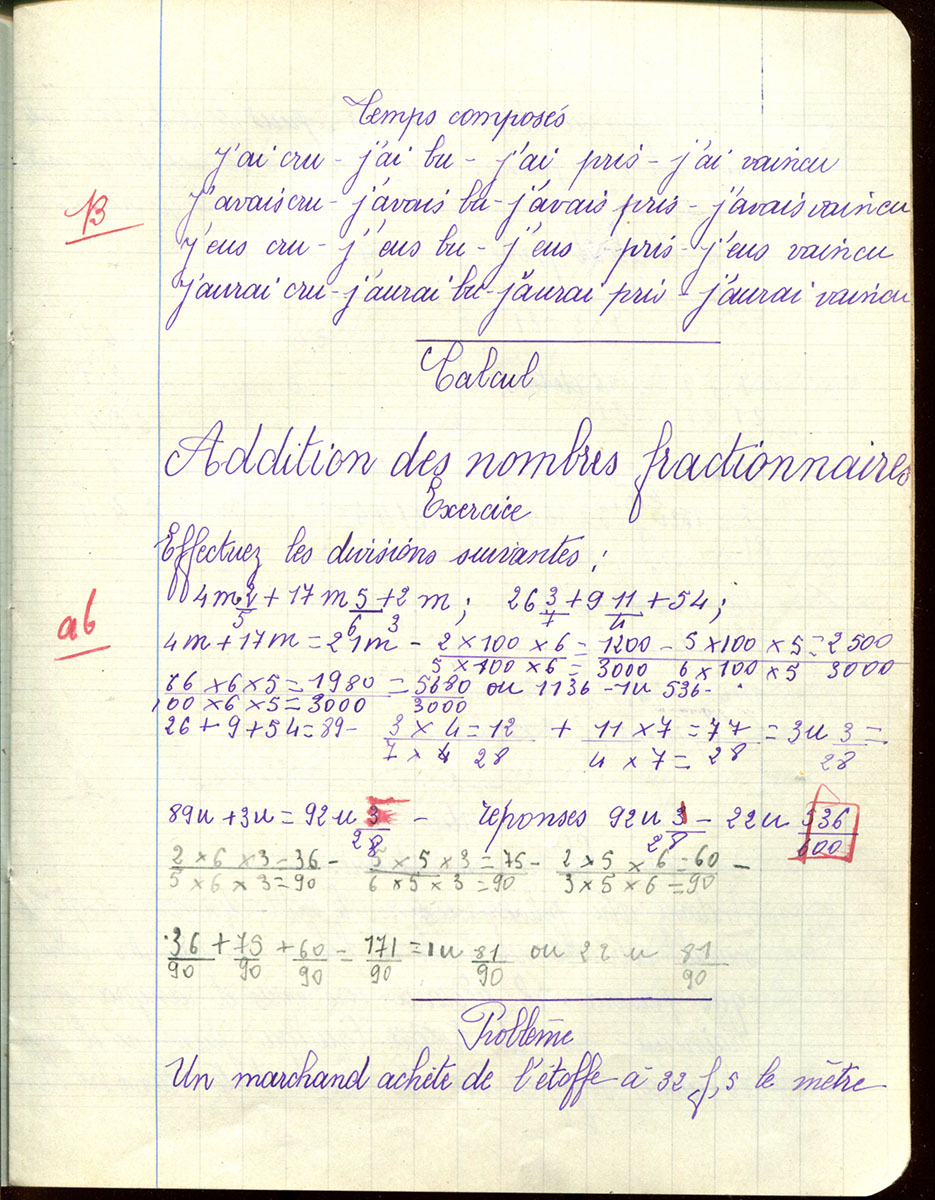 Temps composés
j'ai cru - j'ai bu - j'ai pris - j'ai vaincu
B
j'avais cru - j'avais bu - j'avais pris - j'avais vaincu
j'eus cru - j'eus bu - j'eus pris - j'eus vaincu
j'aurai cru - j'aurai bu - j'aurai pris - j'aurai vaincu
Calcul
Addition des nombres fractionnaires
Exercice
Effectuez les divisions suivantes :
4m 2/5 + 17m 5/6 + 2/3 m ; 26 3/7 + 9 11/4 + 54 ;
ab
4m + 17m = 21m - 2 × 100 × 6 / 5 × 100 × 6 = 1200 / 3000 - 5 × 100 × 5 / 6 × 100 × 5 = 2500 / 3000
66 × 6 × 5 / 100 × 6 × 5 = 1980 / 3000 = 5680 / 3000 ou 1136 - 1u 536 -
26 + 9 + 54 = 89 - 3 × 4 / 7 × 4 = 12 / 28 + 11 × 7 / 4 × 7 = 77 / 28 = 3u 3 / 28 =
89u + 3u = 92u 3/28 - réponses 92u 3/28 - 22u 536/600
2 × 6 × 3 = 36 / 5 × 6 × 3 = 90 - 5 × 5 × 3 = 75 / 6 × 5 × 3 = 90 - 2 × 5 × 6 = 60 / 3 × 5 × 6 = 90 -
36/90 + 75/90 + 60/90 = 171/90 = 1u 81/90 ou 22 u 81/90
Problème
Un marchand achète de l'étoffe à 32 f,5 le mètre